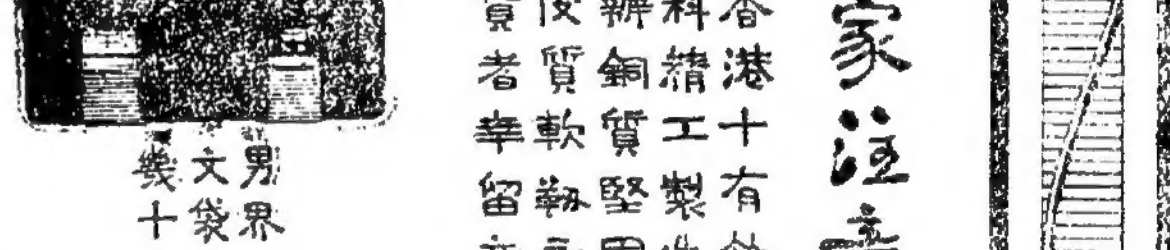 家注意
香港十有
料精工製
辦銅質堅固
皮質軟靱
買者幸留意
男界
文袋
幾十